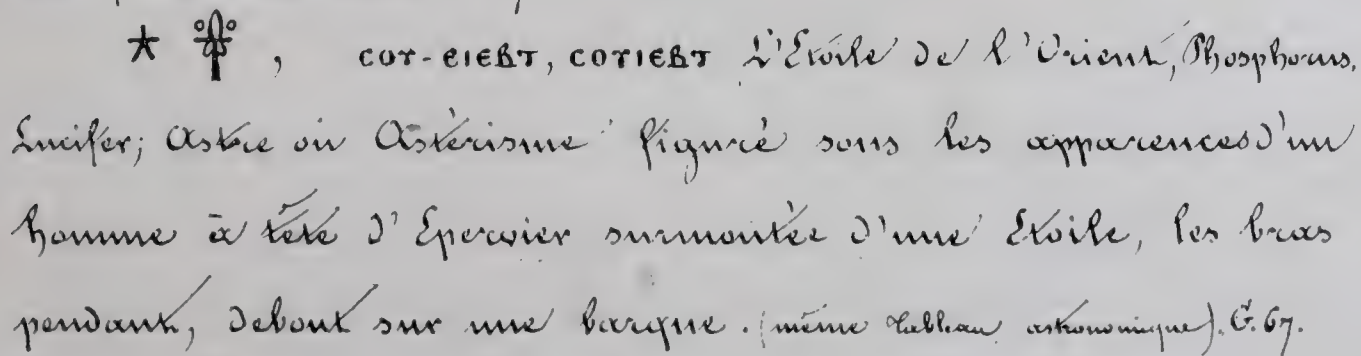 ⲥⲟⲩ-ⲉⲓⲉⲃⲧ, ⲥⲟⲩⲓⲉⲃⲧ L'Etoile de l'Orient, Phosphorus,
Lucifer; Astre ou Astérisme figuré sous les apparences d'un
homme à tête d'Epervier surmontée d'une Etoile, les bras
pendant, debout sur une barque. (même tableau astronomique). G. 67.